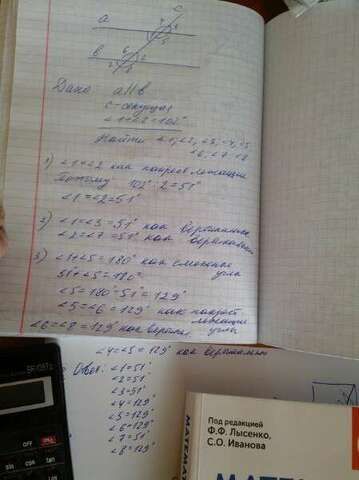 c
a
4 1
3 5
в
6 2
7 8
Дано a||в
c-секущая
∠1+∠2=102°
Найти ∠1,∠2,∠3,∠4,∠5
∠6,∠7,∠8
1) ∠1=∠2 как накрест лежащие
Поэтому 102°:2=51°
∠1=∠2=51°
2) ∠1=∠3=51° как вертикальн
∠2=∠7=51° как вертикальн
3) ∠1+∠5=180° как смежные
51+∠5=180° углы
∠5=180°-51°=129°
∠5=∠6=129° как накрест
лежащие
∠6=∠8=129° как вертик углы
∠4=∠5=129° как вертикальн
Ответ: ∠1=51°
∠2=51°
∠3=51°
∠4=129°
∠5=129°
∠6=129°
∠7=51°
∠8=129°
OFF
Под редакцией
Ф.Ф. Лысенко,
С.О. Иванова
МАТЕМАТ